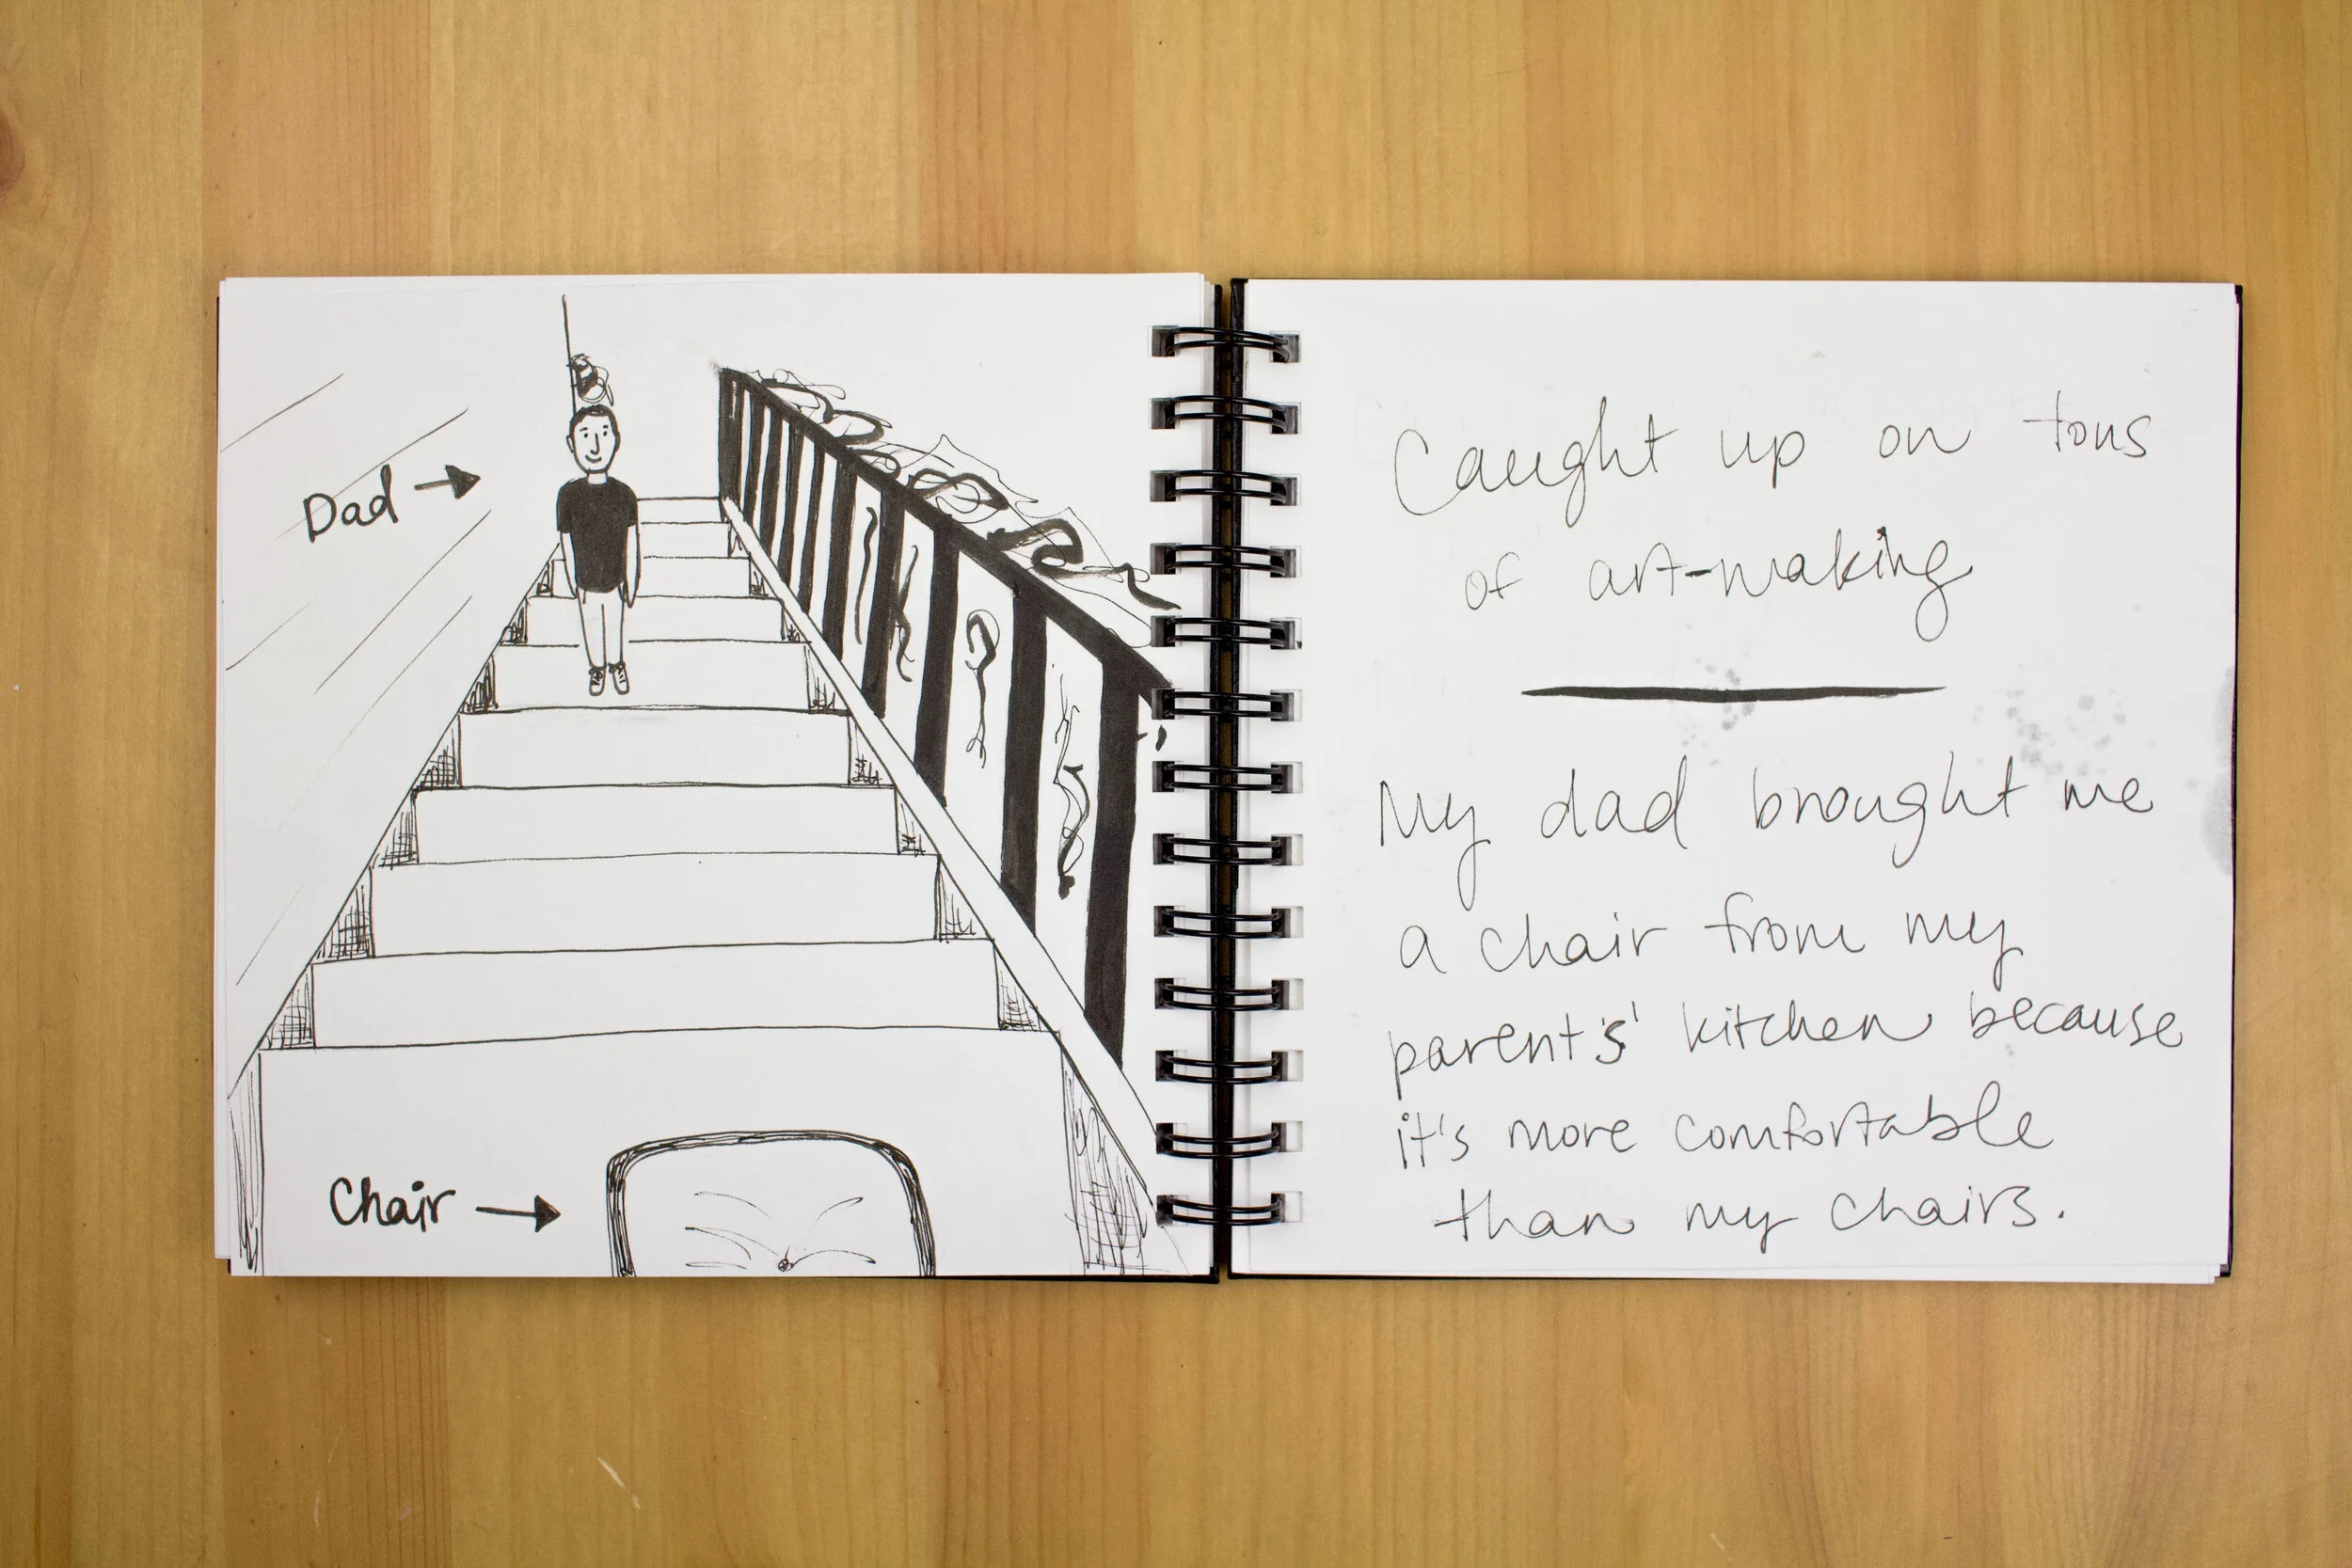 Dad
Chair
Caught up on tons
of art-making
My dad brought me
a chair from my
parent's' kitchen because
it's more comfortable
than my chairs.